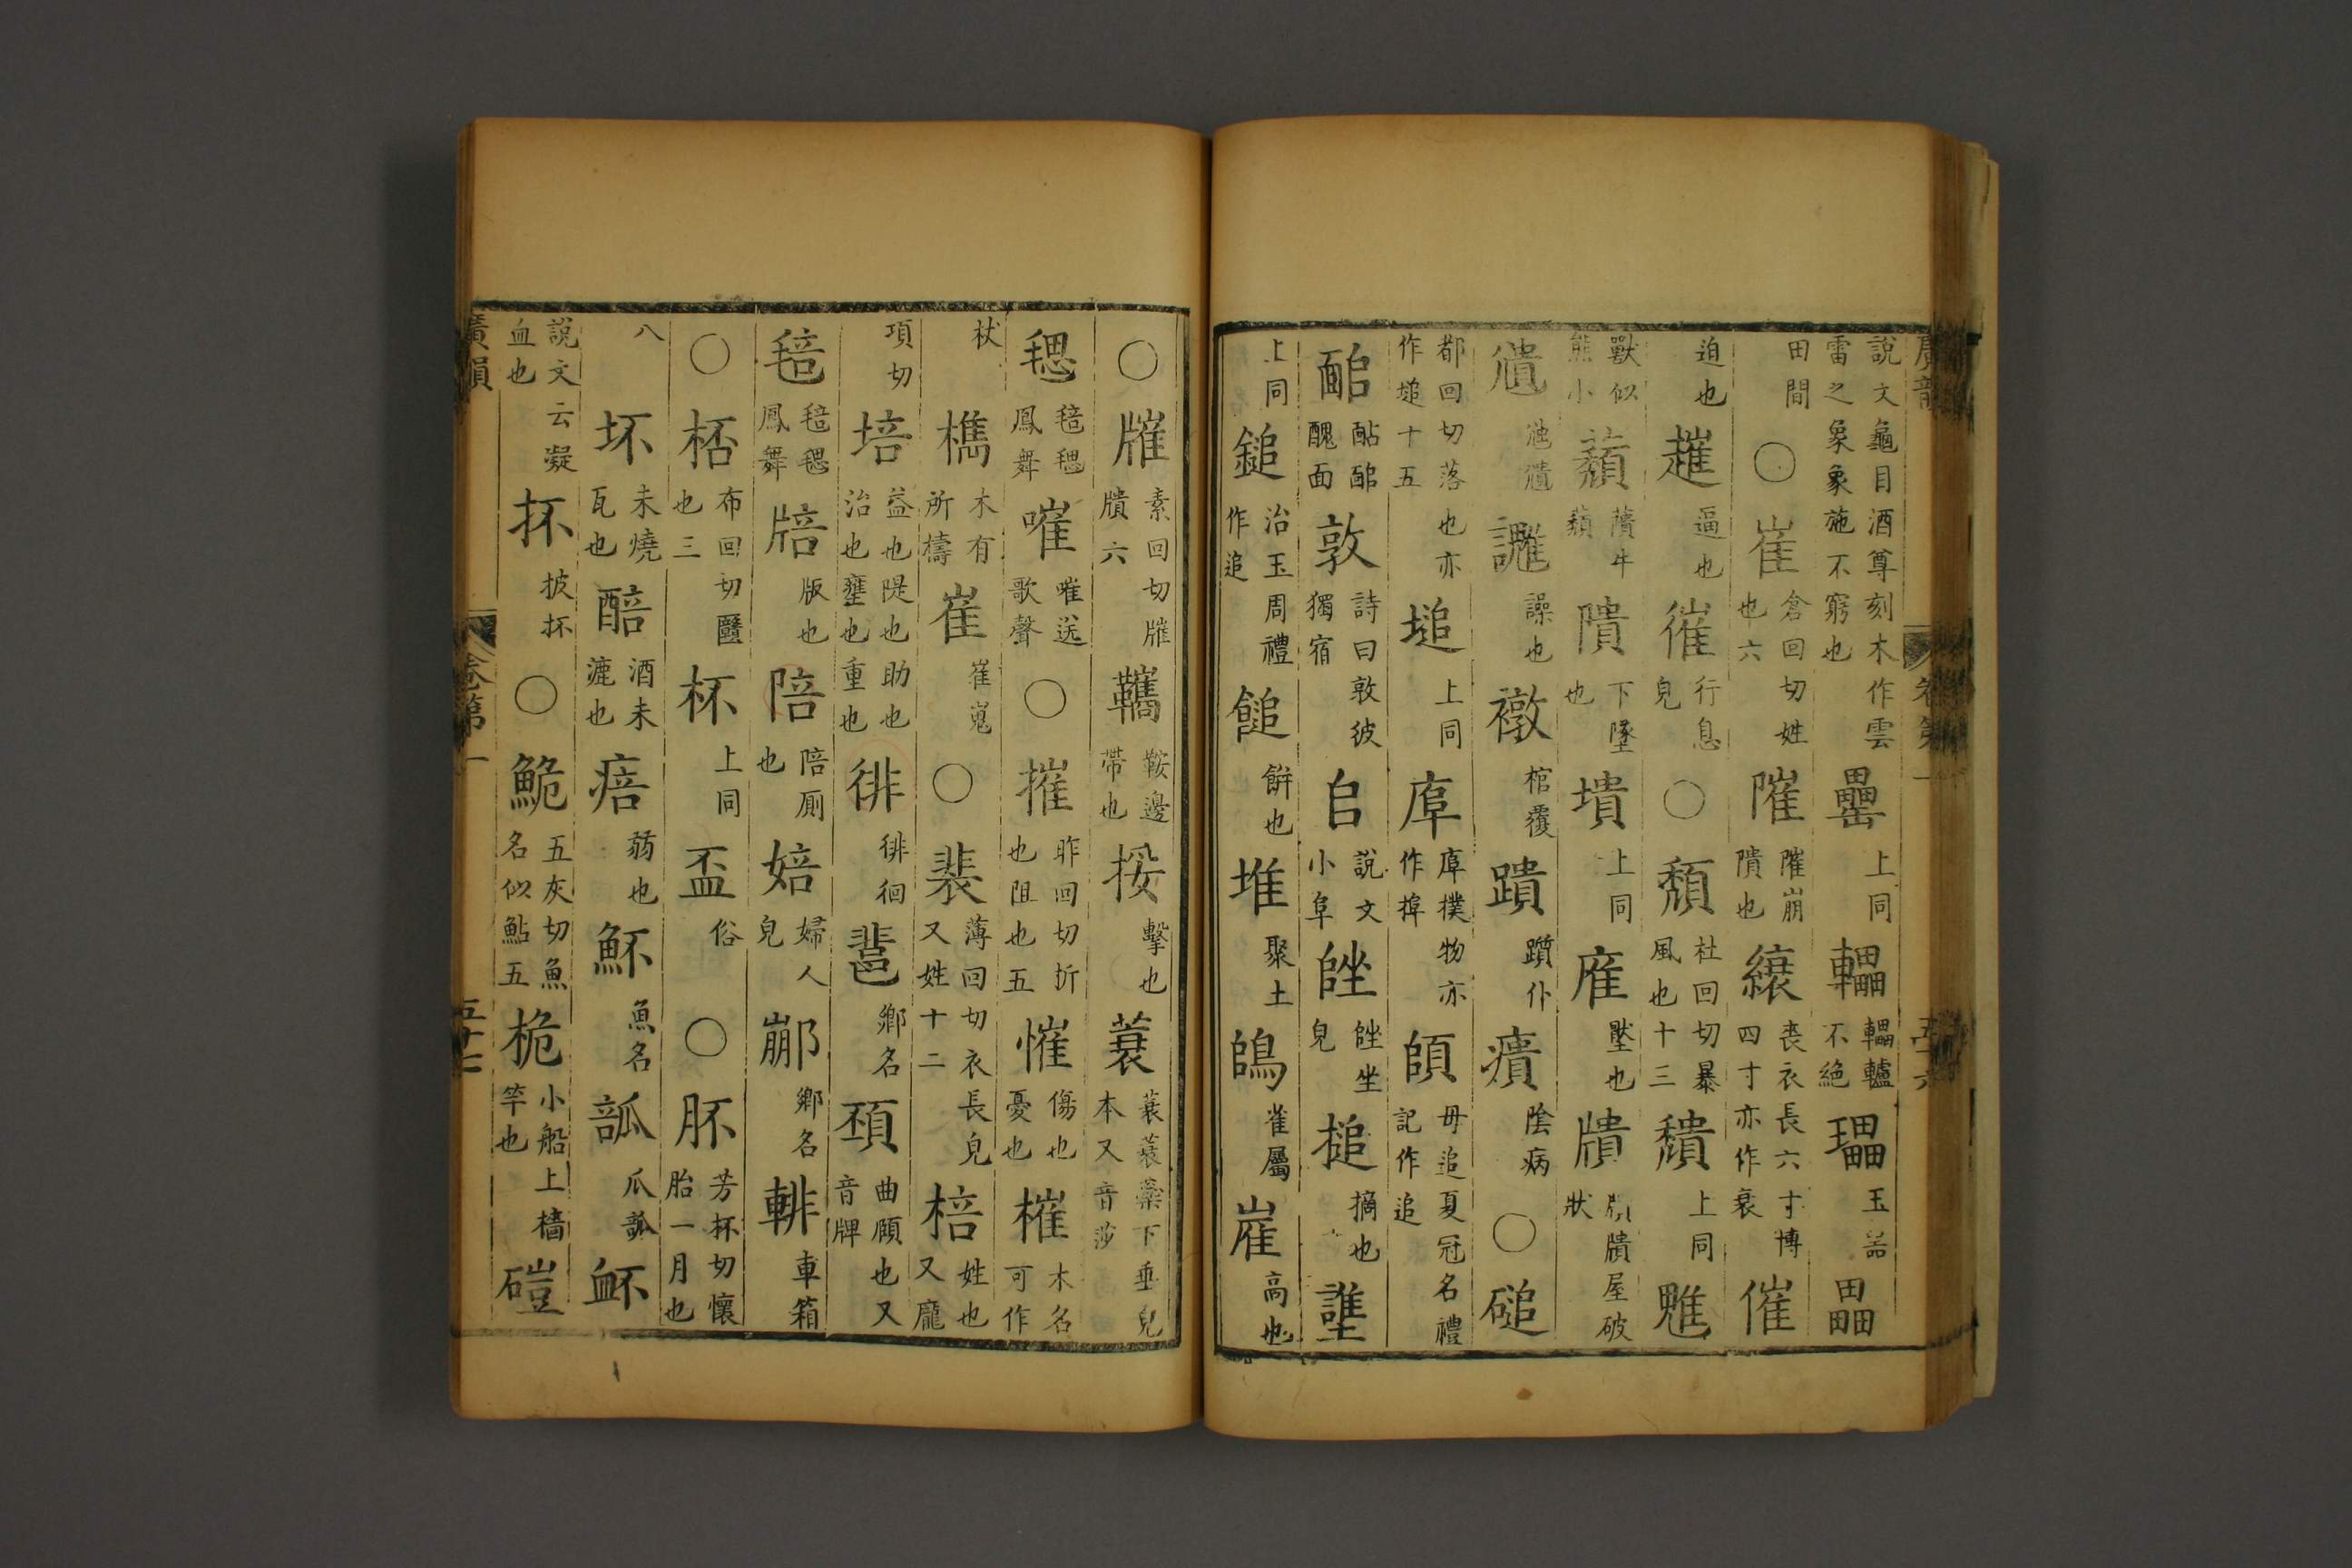 說文龜目酒尊刻木作雲雷之象象施不窮也罍上同轠轠轤不絕瓃玉器畾
田間○崔倉回切姓也六隕崩隤也縗喪衣長六寸博四寸亦作衰催
迫也趡逼也催行息皃○頹杜回切暴風也十三穨上同魋
獸似熊小蘈蘈牛蘈隤下墜也墤上同㢈壓也㿉㿉屋破狀
㣯池㣯讙譟也䙪棺覆蹪躓仆㿉陰病○磓
都回切落也亦作塠十五塠上同㢈㢈撲物亦作㨃頧毋追夏冠名禮記作追
䤷䣯䤷醜面敦詩曰敦彼獨宿𠂤說文小阜䧳䧳坐皃搥擿也譵
上同鎚治玉周禮作追䭔餅也堆聚土鴭雀屬㠑高也
○㩁素回切㩁㿉六鞼鞍邊帶也挼擊也蓑蓑蓑蘂下垂皃本又音莎
毸毰毸鳳舞嗺嗺送歌聲○摧昨回切折也阻也五慛傷也憂也槯木名可作
杖檇木有所檮崔崔嵬○裴薄回切衣長皃又姓十二棓姓也又龐
項切培益也隄也助也治也壅也重也徘徘徊䛬鄉名䫠曲頤也又音牌
毰毰毸鳳舞㟝版也陪陪厠也婄婦人皃䣙鄉名輫車箱
○桮布回切匜也三杯上同盃俗○肧芳杯切懷胎一月也
八坏未燒瓦也醅酒未漉也㾦弱也魾魚名㼎瓜㼎衃
說文云凝血也抔披抔○鮠五灰切魚名似鮎五桅小船上檣竿也磑
廣韻 卷第一 五十七